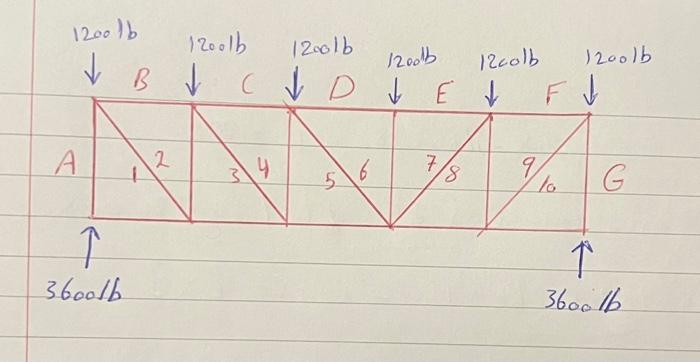 1200lb 1200lb 1200lb 1200lb 1200lb 1200lb
B C D E F
A 1 2 3 4 5 6 7 8 9 10 G
3600lb 3600lb